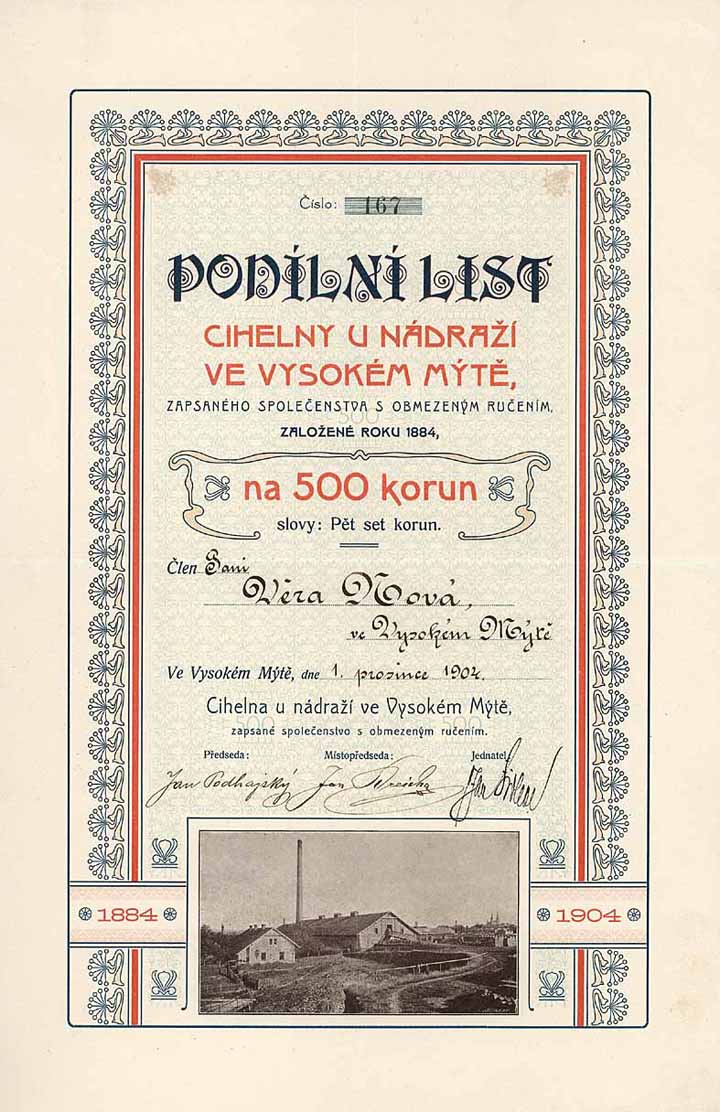 Číslo: 167
PODÍLNÍ LIST
CIHELNY U NÁDRAŽÍ
VE VYSOKÉM MÝTĚ,
ZAPSANÉHO SPOLEČENSTVA S OBMEZENÝM RUČENÍM,
ZALOŽENÉ ROKU 1884,
na 500 korun
slovy: Pět set korun.
Člen Paní
Věra Nová,
ve Vysokém Mýtě
Ve Vysokém Mýtě, dne 1. prosince 1904.
Cihelna u nádraží ve Vysokém Mýtě,
zapsané společenstvo s obmezeným ručením.
Předseda: Místopředseda: Jednatel:
Jan Podhajský Jan Jan
1884 1904